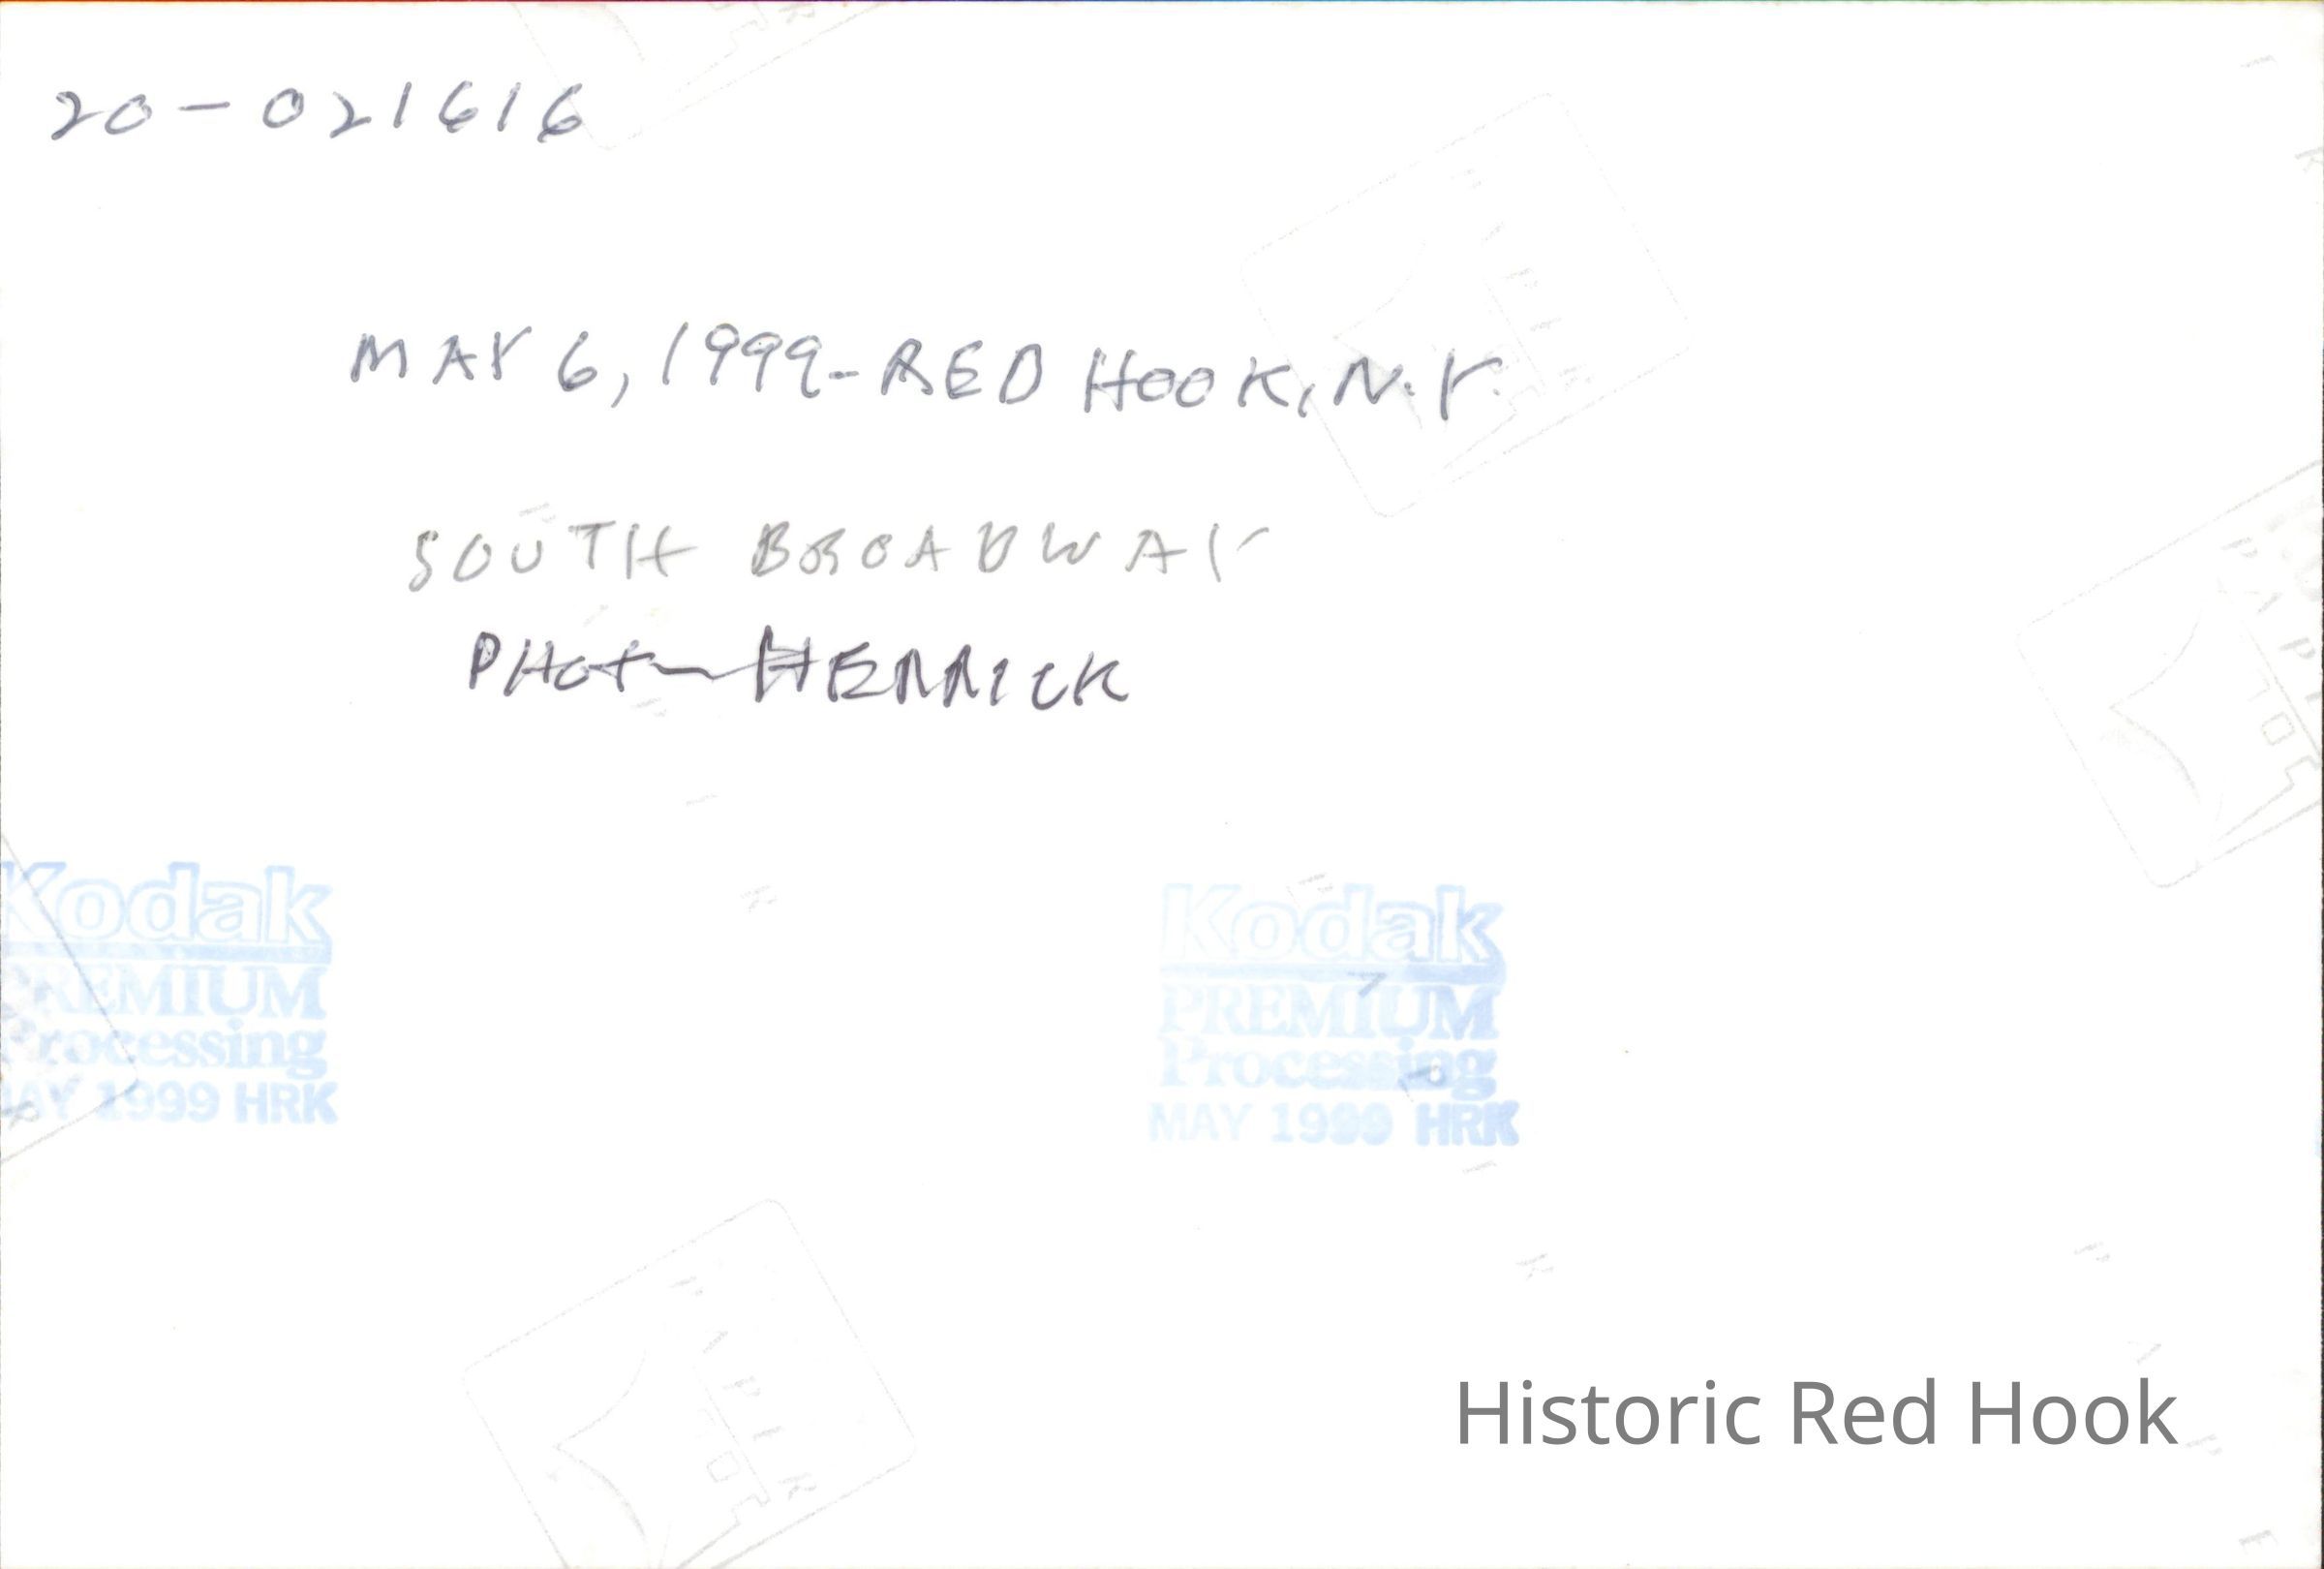 20-021616
MAY 6, 1999-RED HOOK, N.Y.
SOUTH BROADWAY
PHOTO HERRICK
Kodak
PREMIUM
Processing
MAY 1999 HRK
Kodak
PREMIUM
Processing
MAY 1999 HRK
Historic Red Hook